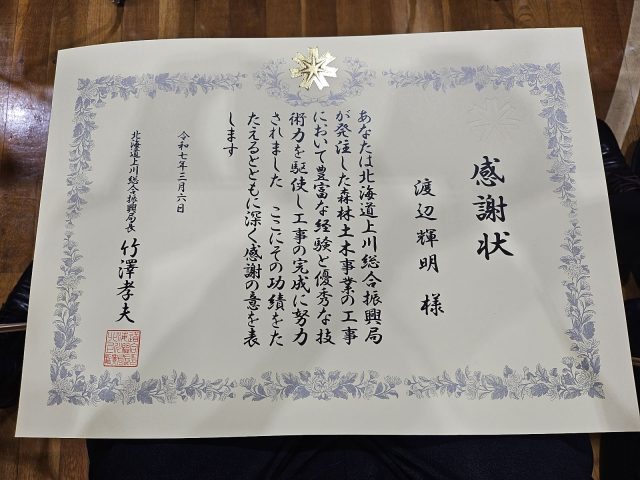 感謝状
渡辺輝明 様
あなたは北海道上川総合振興局
が発注した森林土木事業の工事
において豊富な経験と優秀な技
術力を駆使し工事の完成に努力
されました ここにその功績をた
たえるとともに深く感謝の意を表
します
令和七年三月六日
北海道上川総合振興局長 竹澤孝夫